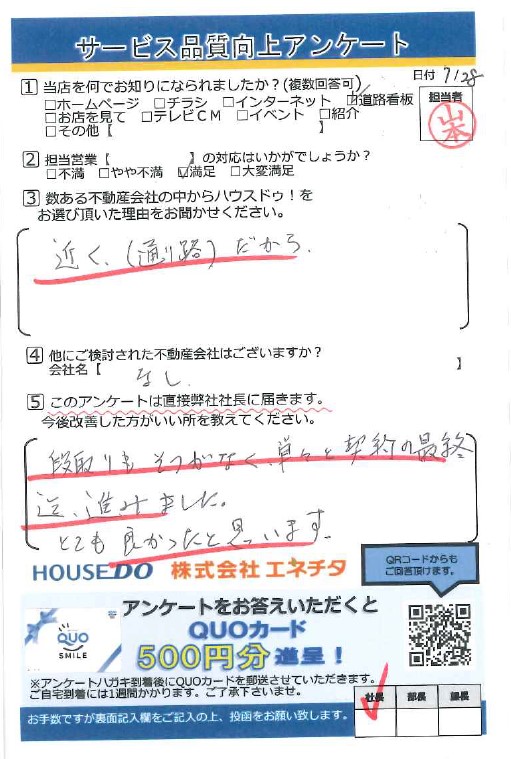 サービス品質向上アンケート
日付 7/28
1 当店を何でお知りになられましたか?(複数回答可)
□ホームページ □チラシ □インターネット ☑道路看板
□お店を見て □テレビCM □イベント □紹介
□その他【 】
担当者
山本
2 担当営業【 】の対応はいかがでしょうか?
□不満 □やや不満 ☑満足 □大変満足
3 数ある不動産会社の中からハウスドゥ!を
お選び頂いた理由をお聞かせください。
近く、(通り路)だから、
4 他にご検討された不動産会社はございますか?
会社名【 なし 】
5 このアンケートは直接弊社社長に届きます。
今後改善した方がいい所を教えてください。
段取りもそつがなく、単々と契約の最終
迄、進みました。
とても良かったと思っています。
HOUSEDO 株式会社 エネチタ
QRコードからも
ご回答頂けます。
QUO
SMILE
アンケートをお答えいただくと
QUOカード
500円分進呈!
※アンケートハガキ到着後にQUOカードを郵送させていただきます。
ご自宅到着には1週間かかります。ご了承下さいませ。
社長 部長 課長
お手数ですが裏面記入欄をご記入の上、投函をお願い致します。